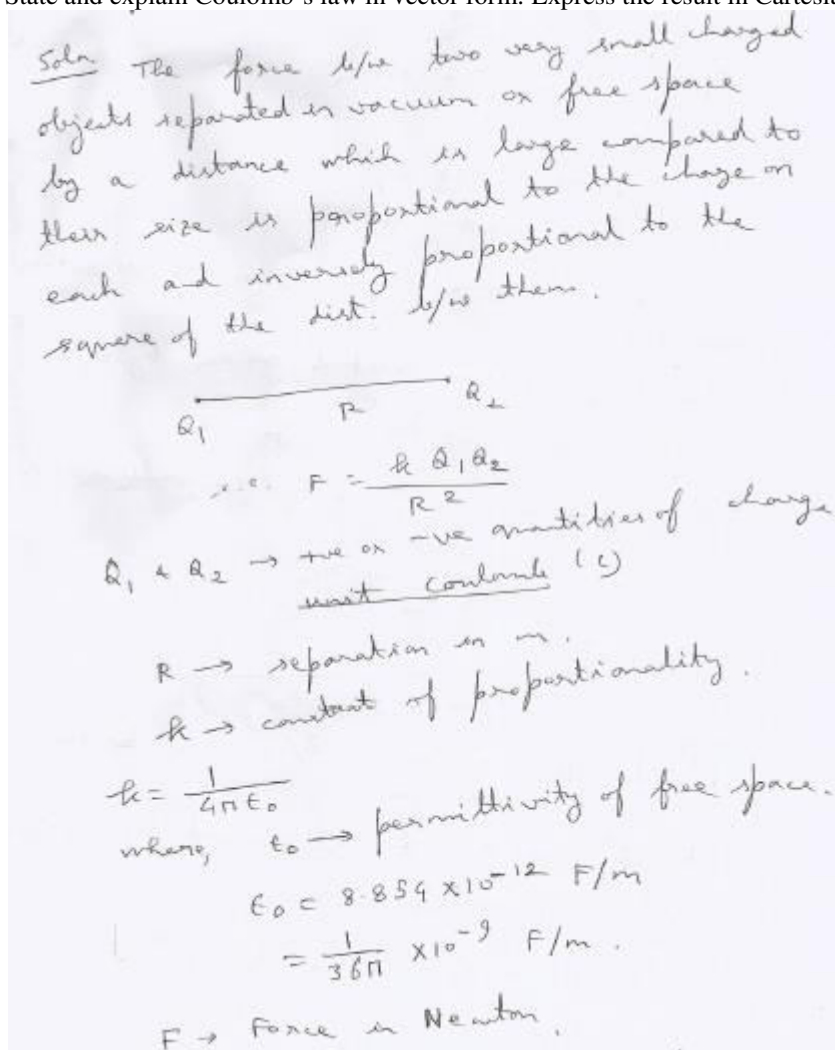 State and explain Coulomb's law in vector form. Express the result in Cartesia
Soln The force b/w two very small charged
objects separated in vacuum or free space
by a distance which is large compared to
their size is proportional to the charge on
each and inversely proportional to the
square of the dist. b/w them.
Q1 R Q2
i.e. F = k Q1 Q2 / R^2
Q1 & Q2 → +ve or -ve quantities of charge
unit coulomb (C)
R → separation in m.
k → constant of proportionality.
k = 1 / 4π ϵ0
where, ϵ0 → permittivity of free space.
ϵ0 = 8.854 × 10^-12 F/m
= 1/36π × 10^-9 F/m.
F → Force in Newton.